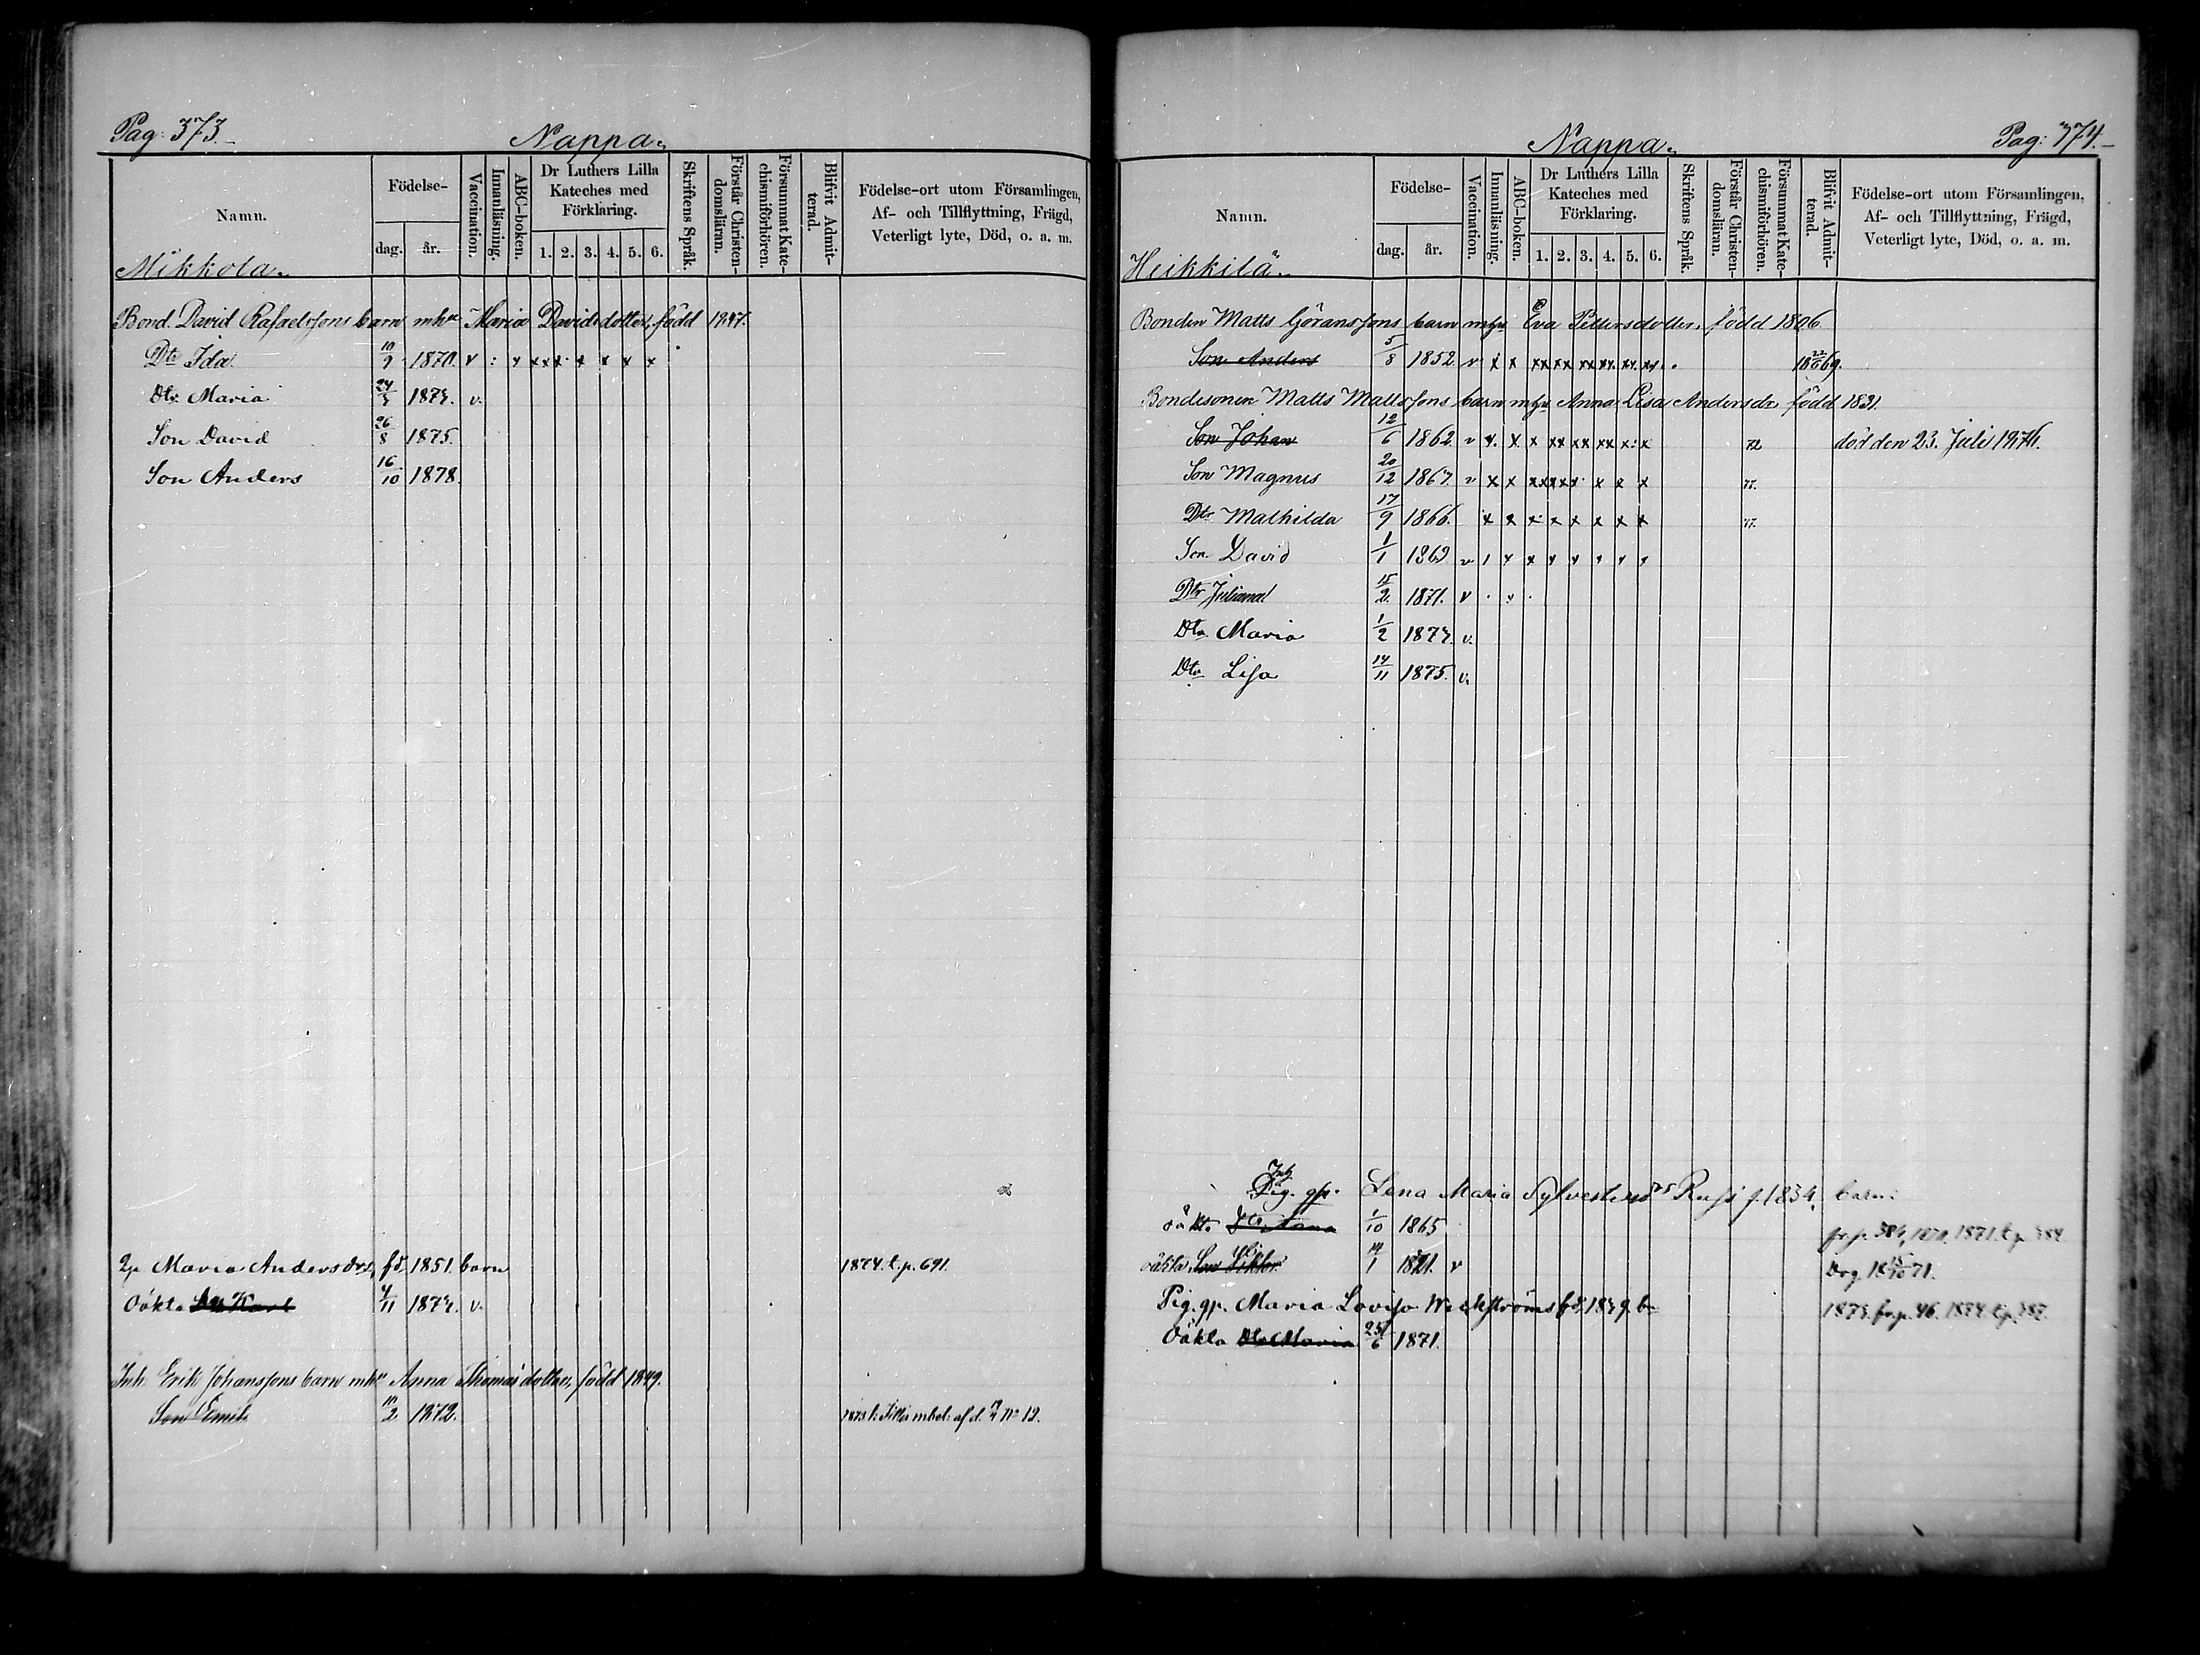 Pag: 373.
Nappa.
Namn.
Födelse-
dag. år.
Vaccination.
Innanläsning.
ABC-boken.
Dr Luthers Lilla Kateches med Förklaring.
1. 2. 3. 4. 5. 6.
Skriftens Språk.
Förstår Christendomsläran.
Försummat Katechismiförhören.
Blifvit Admitterad.
Födelse-ort utom Församlingen,
Af- och Tillflyttning, Frägd,
Veterligt lyte, Död, o. a. m.
Mikkola.
Bond. David Rafaelssons barn mhu Maria Davidsdotter, född 1847.
Dtr Ida 10/9 1870. v
Dtr Maria 1873. v.
Son David 26/8 1875.
Son Anders 16/10 1878.
Maria Andersdrs, fd. 1851. barn 1874. t. p. 691.
Oäkta Karl 4/11 1873. v.
Inh. Erik Johanssons barn mhu Anna Thomasdotter, född 1849.
Son Emil 11/2 1872.
Nappa.
Pag: 374.
Namn.
Födelse-
dag. år.
Vaccination.
Innanläsning.
ABC-boken.
Dr Luthers Lilla Kateches med Förklaring.
1. 2. 3. 4. 5. 6.
Skriftens Språk.
Förstår Christendomsläran.
Försummat Katechismiförhören.
Blifvit Admitterad.
Födelse-ort utom Församlingen,
Af- och Tillflyttning, Frägd,
Veterligt lyte, Död, o. a. m.
Heikkilä.
Bonden Matts Göranssons barn mhu Eva Pettersdotter, född 1806.
Son Anders 5/8 1852. v x x xx xx xx xx xx xx 18 22/6 69.
Bondesonen Matts Mattssons barn mhu Anna Lisa Andersdr född 1831.
Son Johan 12/6 1862 v x x x xx xx xx x x 72 död den 23. Juli 1876.
Son Magnus 20/12 1867 v x x 77.
Dtr Mathilda 17/9 1866. x x x x x x x x 77.
Son David 1/1 1869 v
Dtr Juliana 15/2 1871. v
Dtr Maria 1/2 1873. v.
Dtr Lisa 14/11 1875. v.
Inh
Pig. gp. Lena Maria Sylvestersdrs f. 1834. barn:
oäkta Dtr Anna 1/10 1865
oäkta Son Viktor 14/1 1871. v
Pig. gp. Maria Lovisa fd. 1839. b.
Oäkta Dtr Maria 25/6 1871.